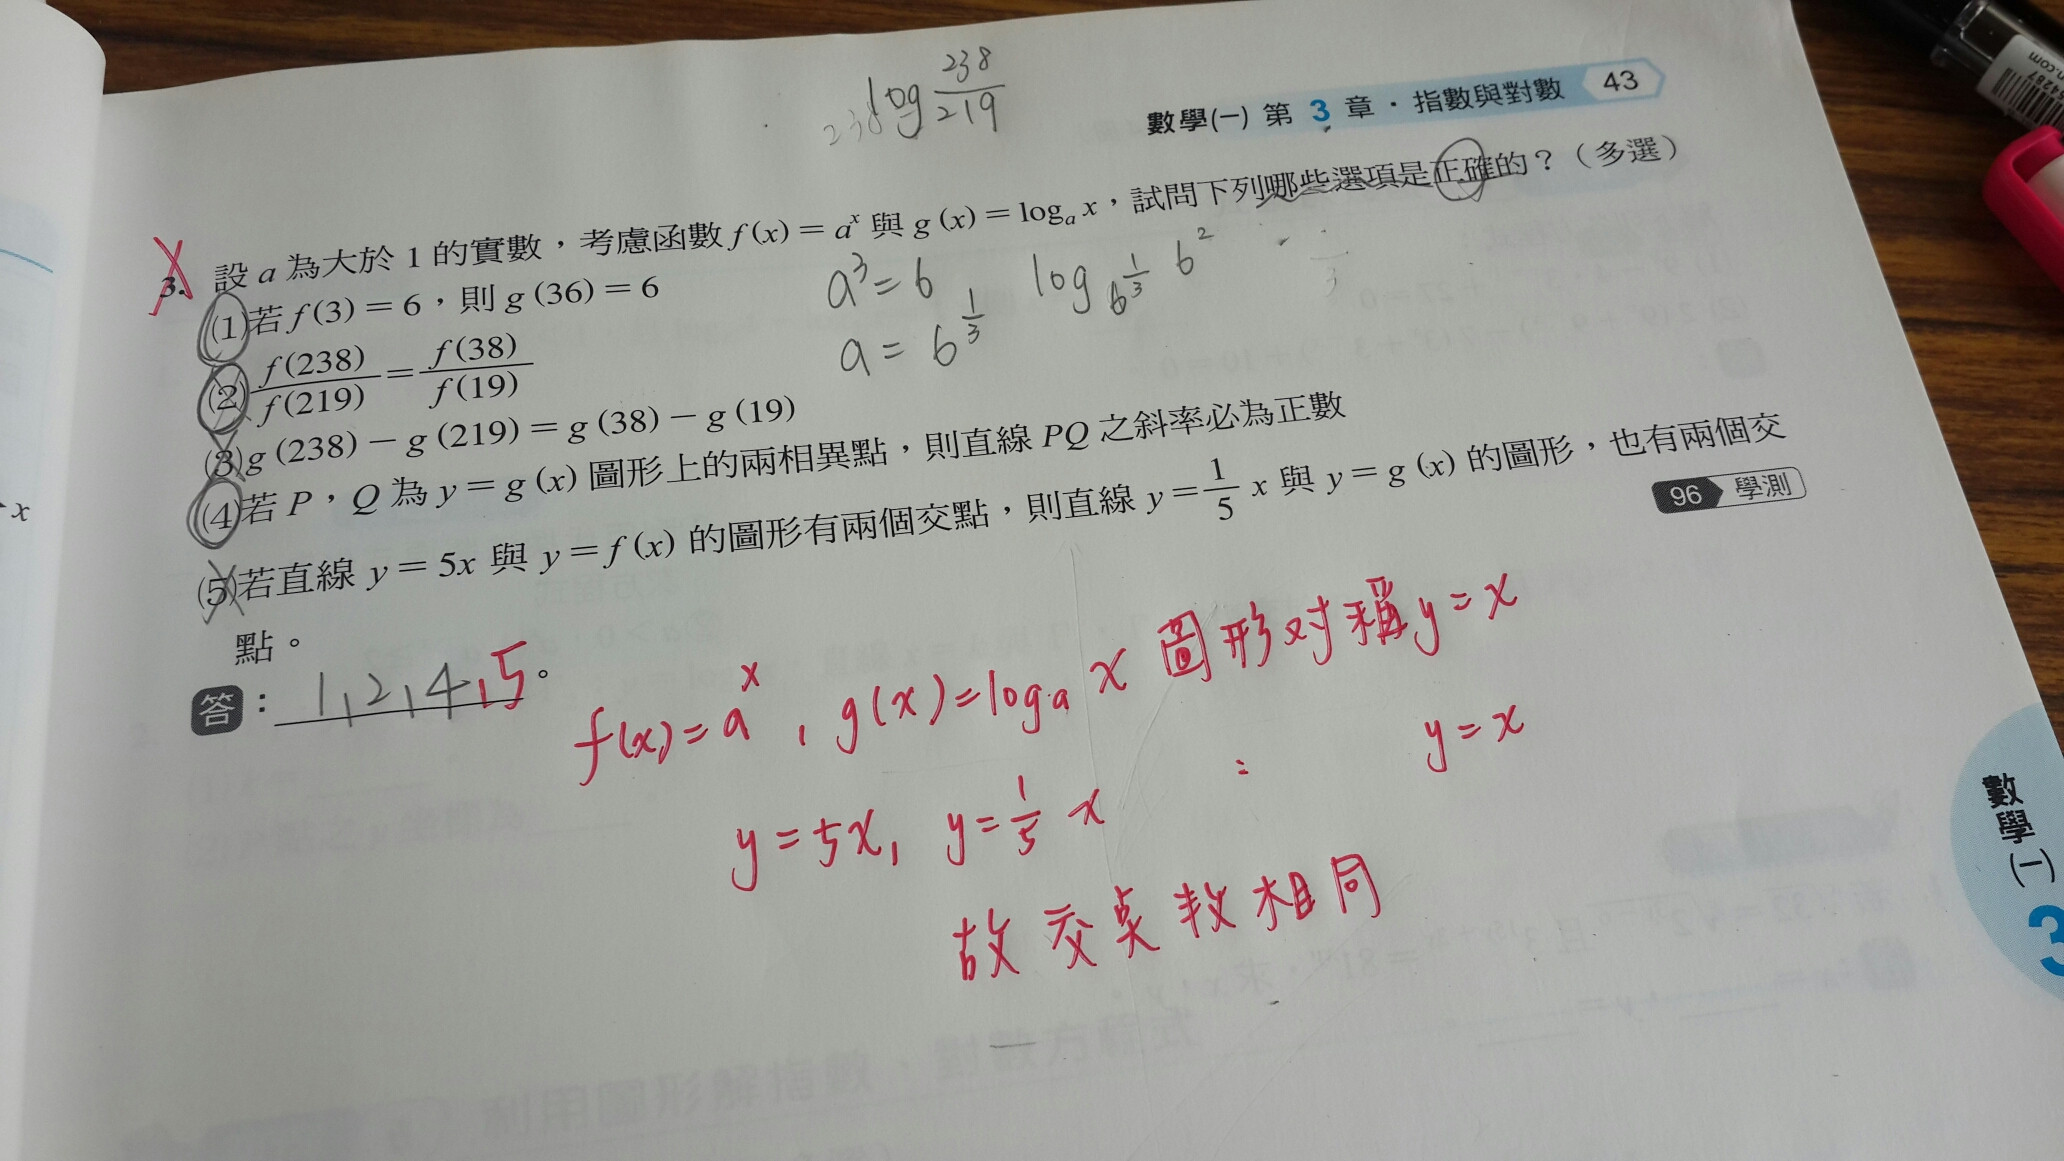 log 238/219
數學(一) 第 3 章・指數與對數 43
3. 設 a 為大於 1 的實數，考慮函數 f(x) = aˣ 與 g(x) = logₐ x，試問下列哪些選項是正確的？（多選）
(1)若 f(3) = 6，則 g(36) = 6
a³ = 6
log 6^(1/3) 6²
a = 6^(1/3)
(2) f(238)/f(219) = f(38)/f(19)
(3) g(238) − g(219) = g(38) − g(19)
(4)若 P，Q 為 y = g(x) 圖形上的兩相異點，則直線 PQ 之斜率必為正數
(5)若直線 y = 5x 與 y = f(x) 的圖形有兩個交點，則直線 y = 1/5 x 與 y = g(x) 的圖形，也有兩個交
點。
96 學測
答：1,2,4,5。
f(x) = aˣ , g(x) = logₐ x 圖形对稱 y = x
y = 5x, y = 1/5 x : y = x
故交點數相同
數學(一)
3
x